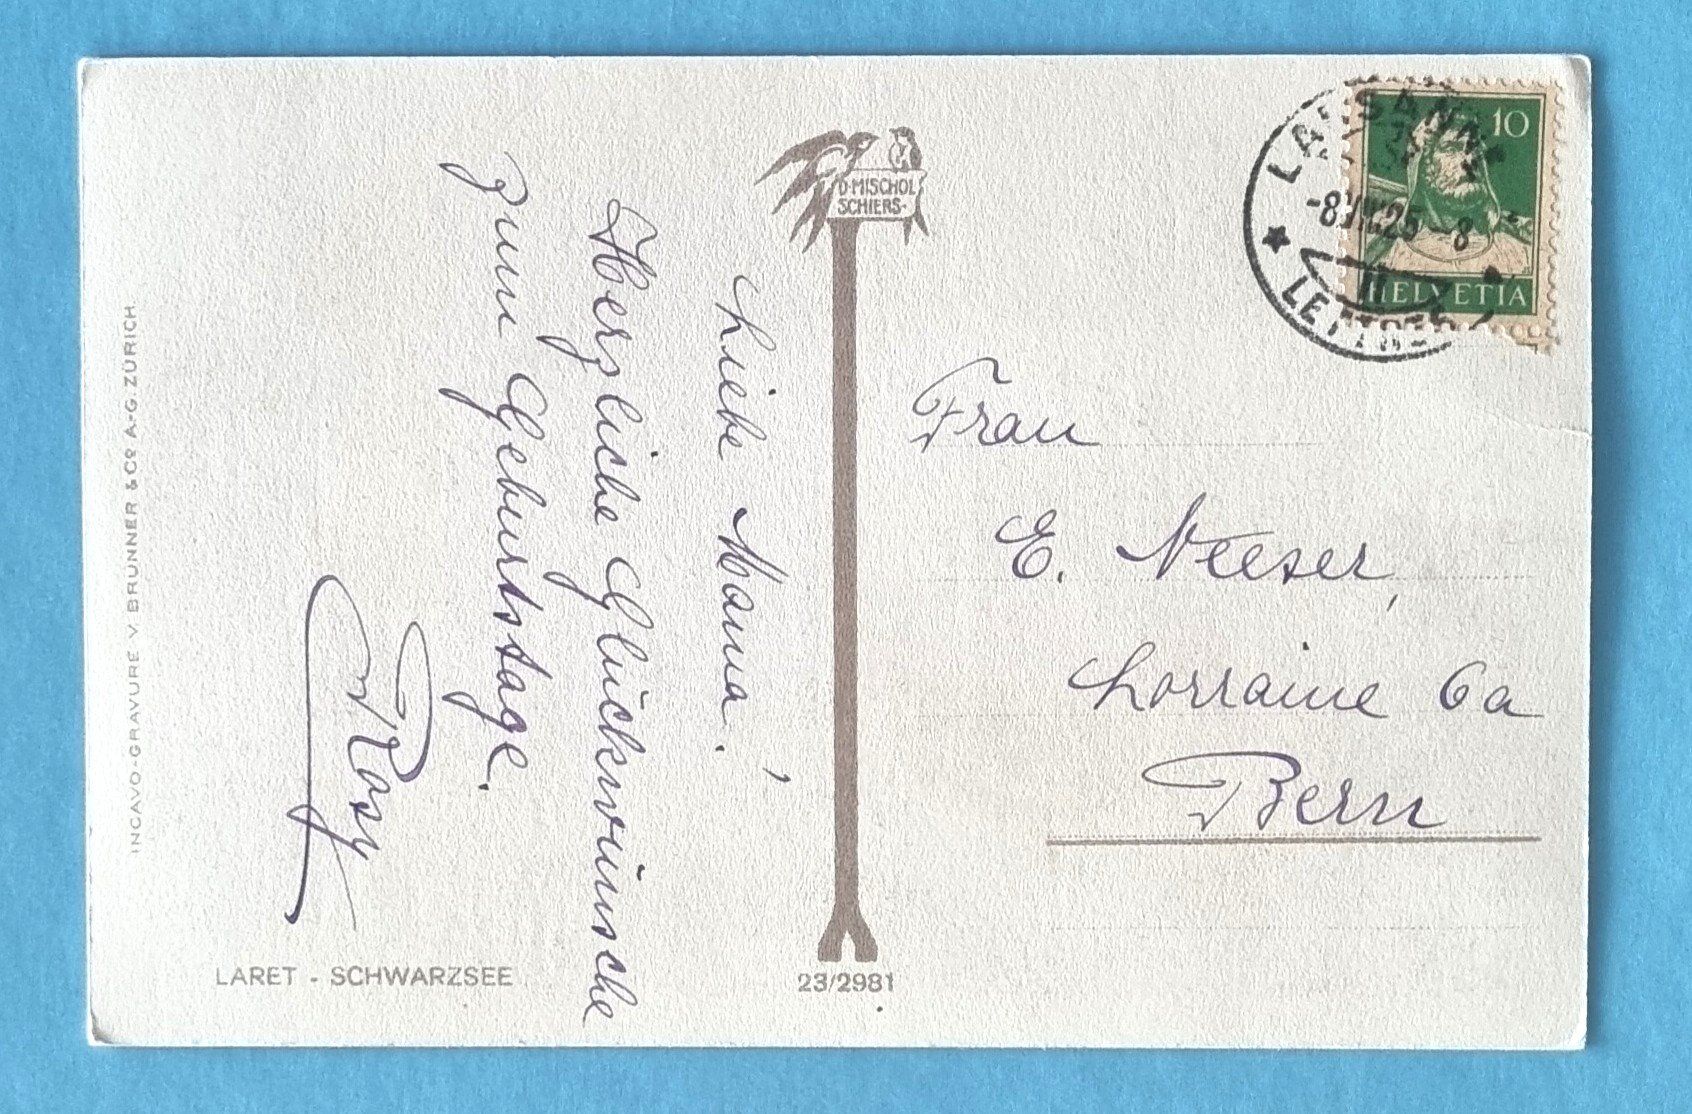 Liebe Mama!
Herzliche Glückwünsche
zum Geburtstage.
Rosy
D. MISCHOL
SCHIERS.
LAUSANNE
-8. 25 -8
10
HELVETIA
Frau
E. Neeser,
Lorraine 6a
Bern
INCAVO-GRAVURE V BRUNNER & Co A-G. ZÜRICH
LARET - SCHWARZSEE
23/2981